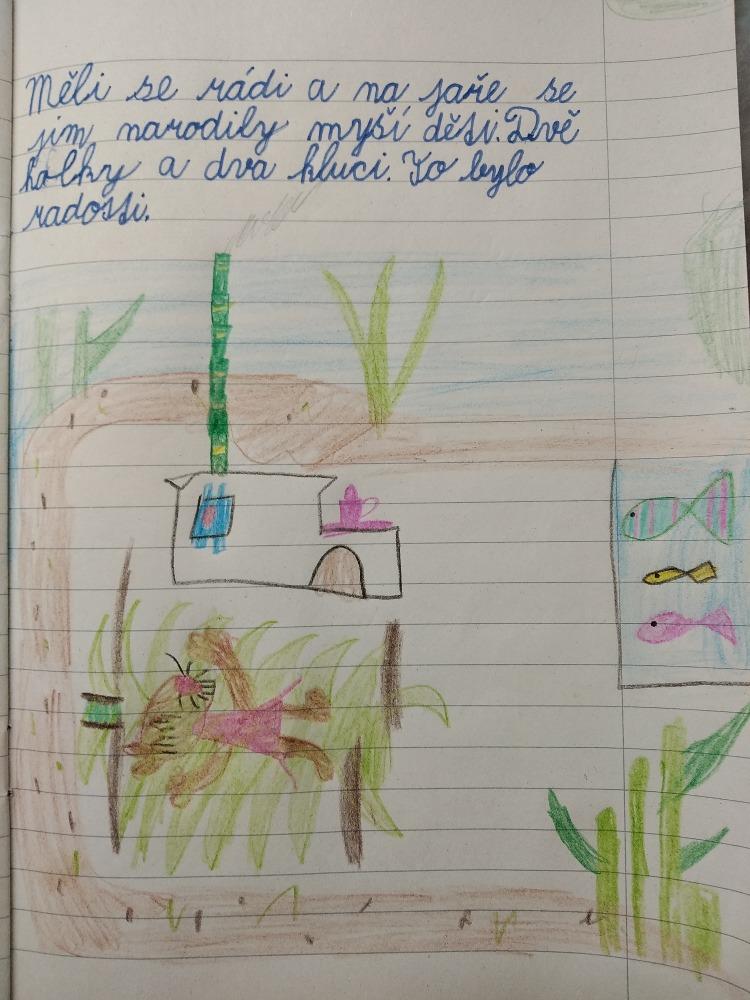 Měli se rádi a na jaře se
jim narodily myší děti. Dvě
holky a dva kluci. To bylo
radosti.